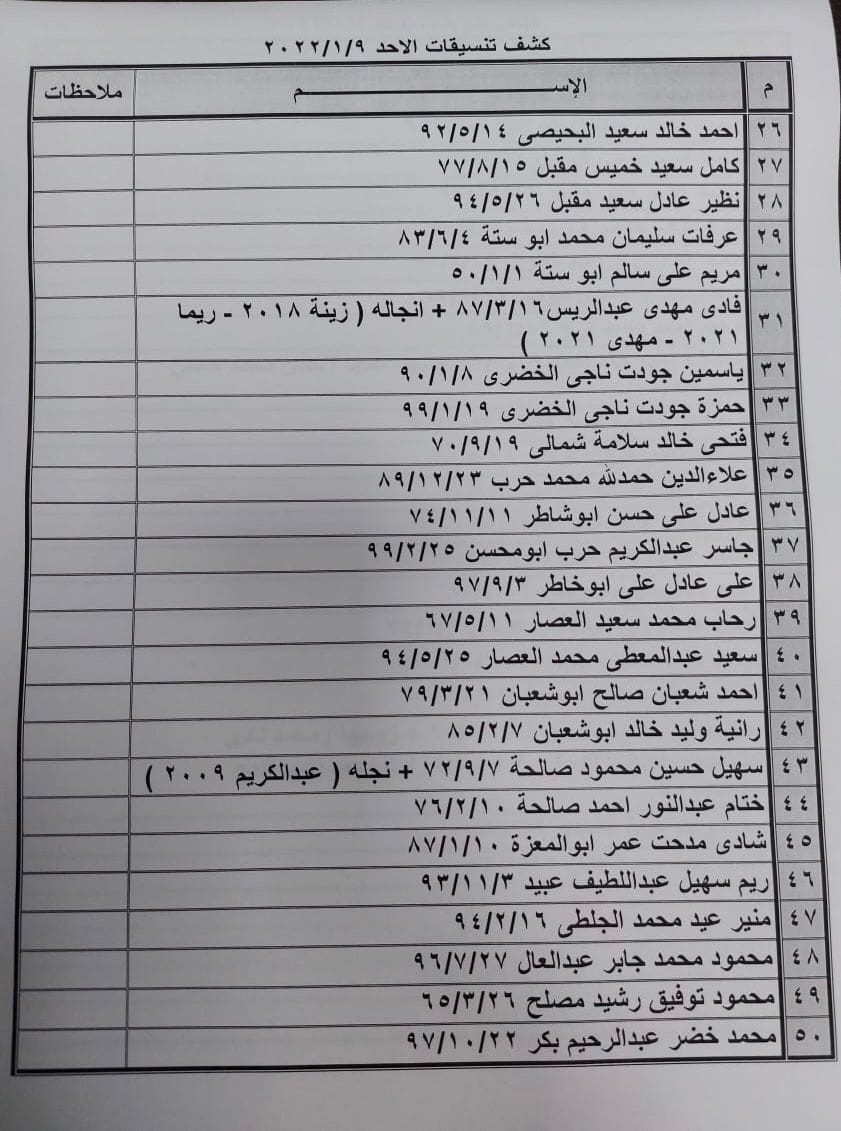 كشف تنسيقات الاحد ٢٠٢٢/١/٩
م الإســـــــــم ملاحظات
٢٦ احمد خالد سعيد البحيصى ٩٢/٥/١٤
٢٧ كامل سعيد خميس مقبل ٧٧/٨/١٥
٢٨ نظير عادل سعيد مقبل ٩٤/٥/٢٦
٢٩ عرفات سليمان محمد ابو ستة ٨٣/٦/٤
٣٠ مريم على سالم ابو ستة ٥٠/١/١
٣١ فادى مهدى عبدالريس٨٧/٣/١٦ + انجاله ( زينة ٢٠١٨ - ريما
٢٠٢١ - مهدى ٢٠٢١ )
٣٢ ياسمين جودت ناجى الخضرى ٩٠/١/٨
٣٣ حمزة جودت ناجى الخضرى ٩٩/١/١٩
٣٤ فتحى خالد سلامة شمالى ٧٠/٩/١٩
٣٥ علاءالدين حمدلله محمد حرب ٨٩/١٢/٢٣
٣٦ عادل على حسن ابوشاطر ٧٤/١١/١١
٣٧ جاسر عبدالكريم حرب ابومحسن ٩٩/٢/٢٥
٣٨ على عادل على ابوخاطر ٩٧/٩/٣
٣٩ رحاب محمد سعيد العصار ٦٧/٥/١١
٤٠ سعيد عبدالمعطى محمد العصار ٩٤/٥/٢٥
٤١ احمد شعبان صالح ابوشعبان ٧٩/٣/٢١
٤٢ رانية وليد خالد ابوشعبان ٨٥/٢/٧
٤٣ سهيل حسين محمود صالحة ٧٢/٩/٧ + نجله ( عبدالكريم ٢٠٠٩ )
٤٤ ختام عبدالنور احمد صالحة ٧٦/٢/١٠
٤٥ شادى مدحت عمر ابوالمعزة ٨٧/١/١٠
٤٦ ريم سهيل عبداللطيف عبيد ٩٣/١١/٣
٤٧ منير عيد محمد الجلطى ٩٤/٢/١٦
٤٨ محمود محمد جابر عبدالعال ٩٦/٧/٢٧
٤٩ محمود توفيق رشيد مصلح ٦٥/٣/٢٦
٥٠ محمد خضر عبدالرحيم بكر ٩٧/١٠/٢٢